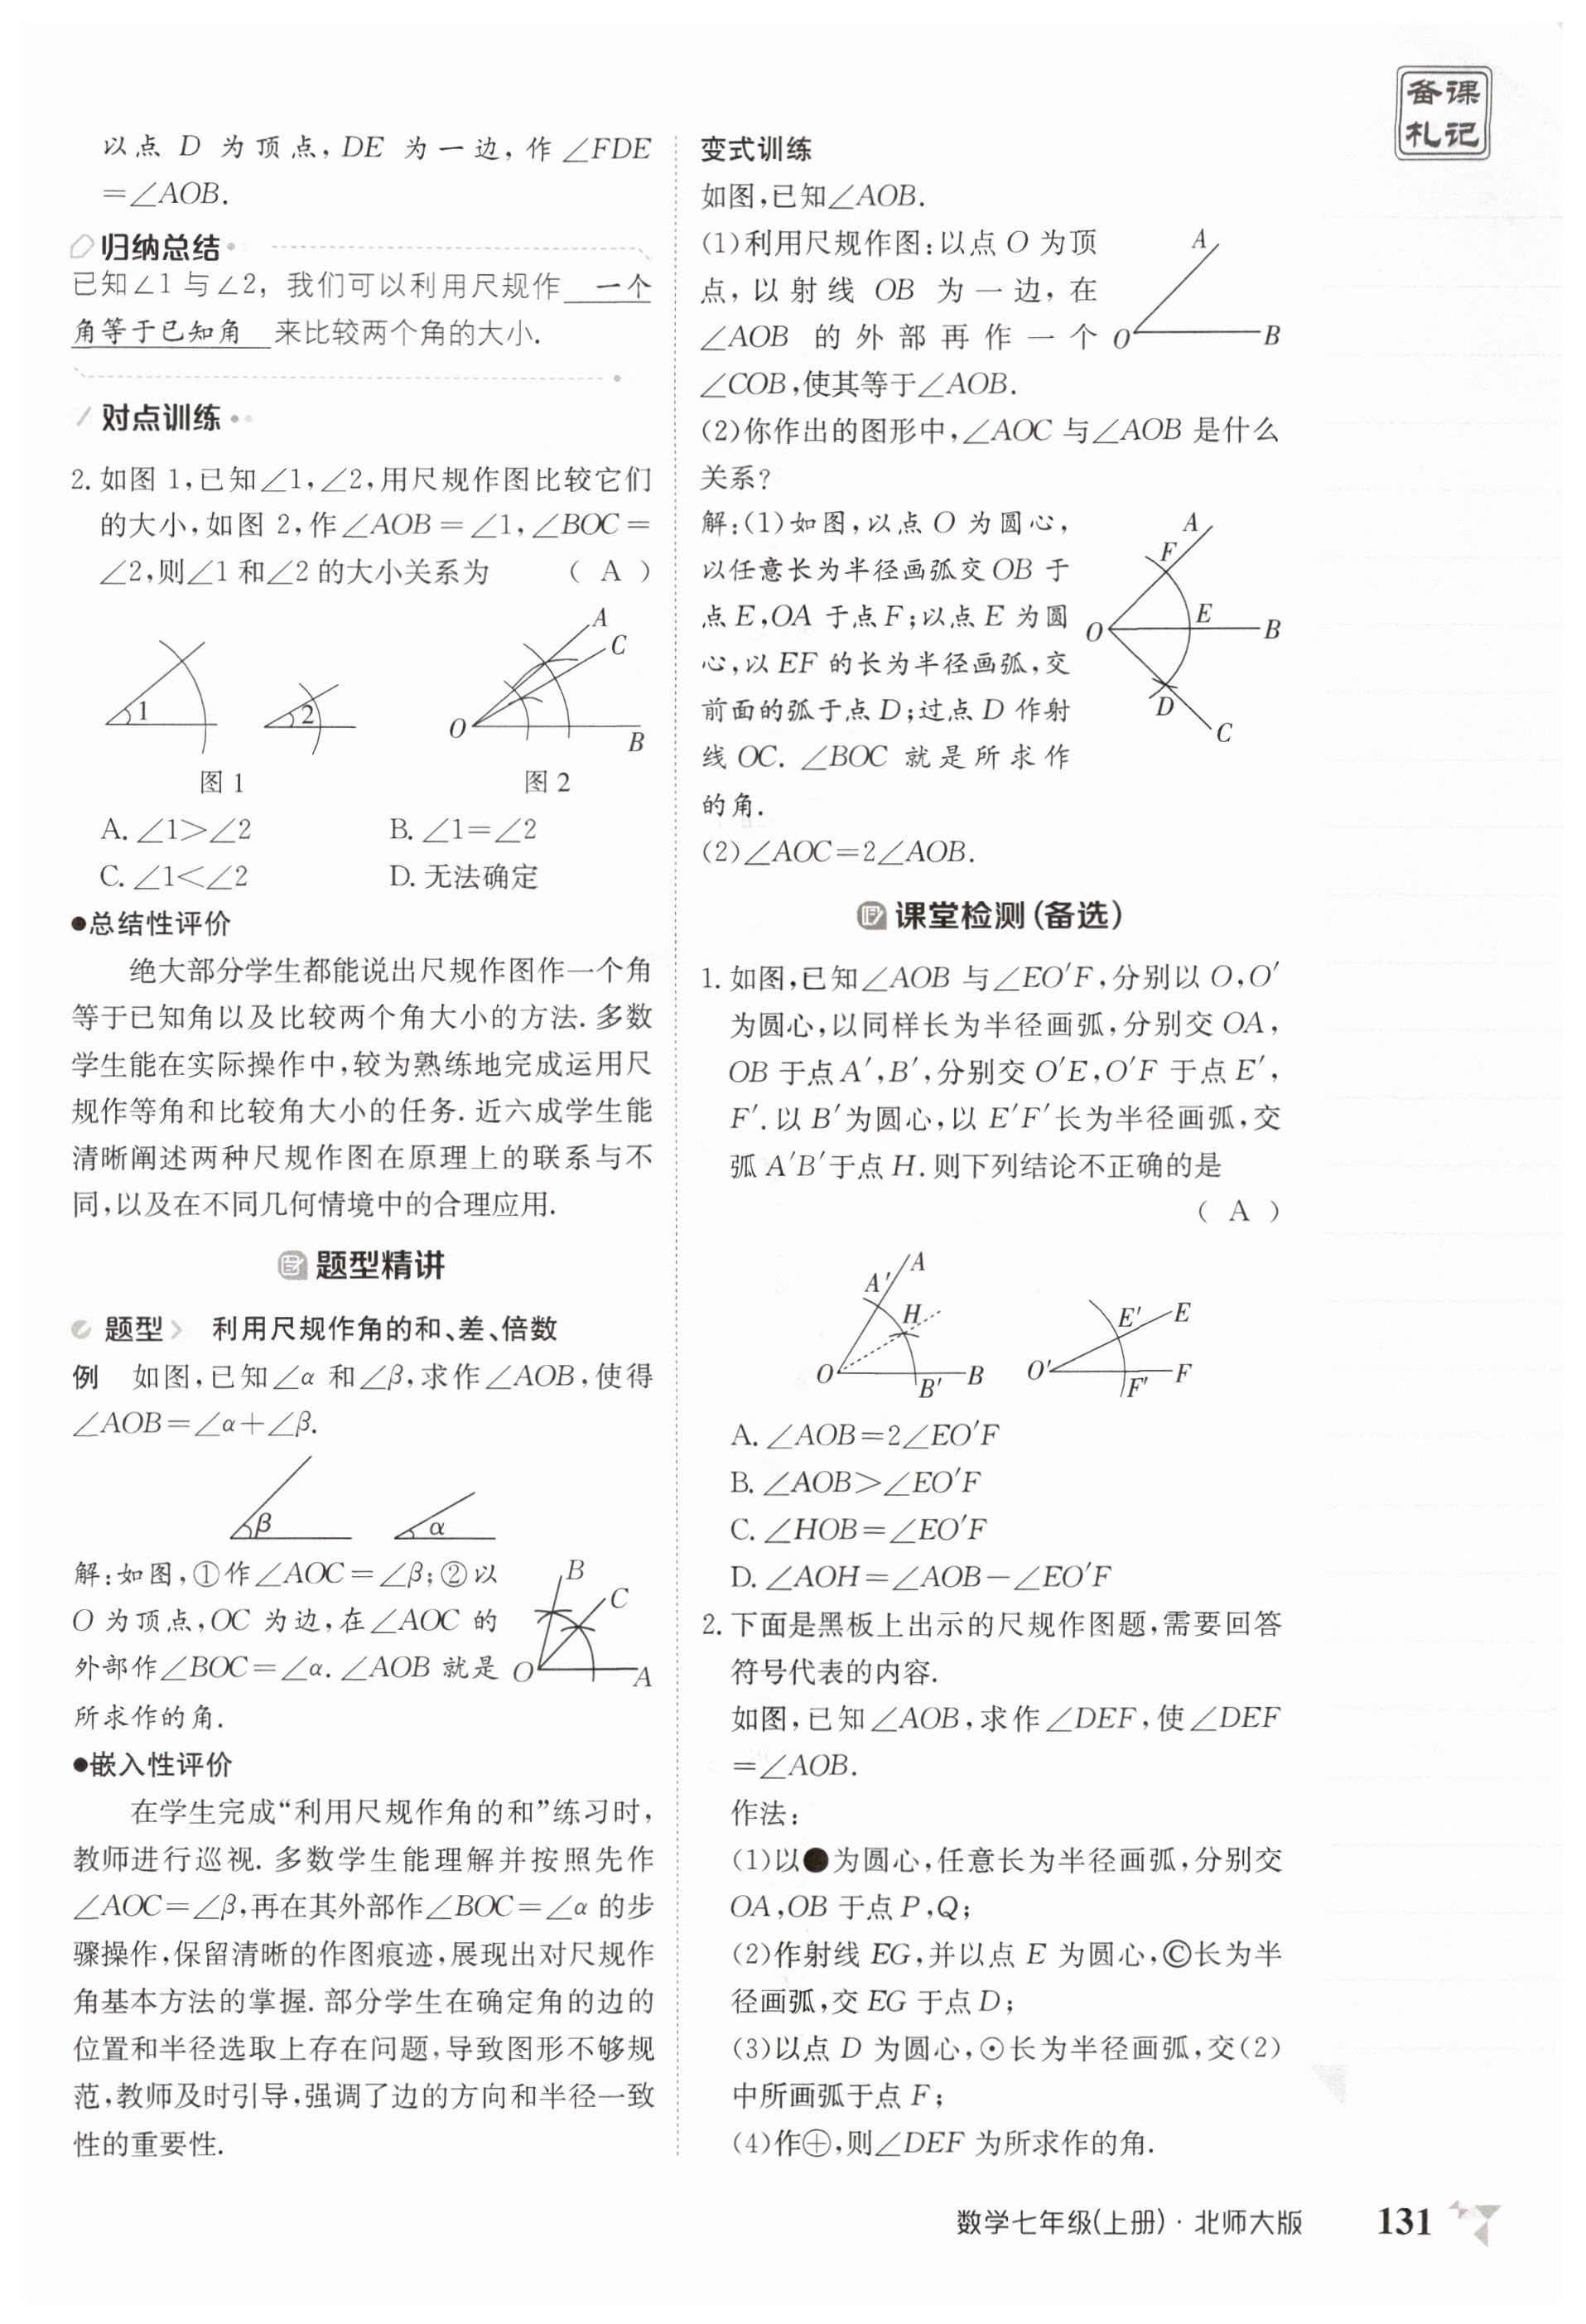 备课
札记
以点 D 为顶点,DE 为一边,作∠FDE
=∠AOB.
归纳总结
已知∠1与∠2，我们可以利用尺规作 一个
角等于已知角 来比较两个角的大小.
对点训练
2. 如图 1,已知∠1,∠2,用尺规作图比较它们
的大小,如图 2,作∠AOB=∠1,∠BOC=
∠2,则∠1和∠2的大小关系为 ( A )
1
2
A
C
O
B
图 1 图 2
A. ∠1>∠2 B. ∠1=∠2
C. ∠1<∠2 D. 无法确定
●总结性评价
绝大部分学生都能说出尺规作图作一个角
等于已知角以及比较两个角大小的方法. 多数
学生能在实际操作中,较为熟练地完成运用尺
规作等角和比较角大小的任务. 近六成学生能
清晰阐述两种尺规作图在原理上的联系与不
同,以及在不同几何情境中的合理应用.
题型精讲
题型 利用尺规作角的和、差、倍数
例 如图,已知∠α 和∠β,求作∠AOB,使得
∠AOB=∠α+∠β.
β
α
解:如图,①作∠AOC=∠β;②以
O 为顶点,OC 为边,在∠AOC 的
外部作∠BOC=∠α. ∠AOB 就是
所求作的角.
B
C
O
A
●嵌入性评价
在学生完成“利用尺规作角的和”练习时,
教师进行巡视. 多数学生能理解并按照先作
∠AOC=∠β,再在其外部作∠BOC=∠α 的步
骤操作,保留清晰的作图痕迹,展现出对尺规作
角基本方法的掌握. 部分学生在确定角的边的
位置和半径选取上存在问题,导致图形不够规
范,教师及时引导,强调了边的方向和半径一致
性的重要性.
变式训练
如图,已知∠AOB.
(1)利用尺规作图:以点 O 为顶
点,以射线 OB 为一边,在
∠AOB 的外部再作一个
∠COB,使其等于∠AOB.
A
O
B
(2)你作出的图形中,∠AOC 与∠AOB 是什么
关系?
解:(1)如图,以点 O 为圆心,
以任意长为半径画弧交 OB 于
点 E,OA 于点 F;以点 E 为圆
心,以 EF 的长为半径画弧,交
前面的弧于点 D;过点 D 作射
线 OC. ∠BOC 就是所求作
的角.
A
F
E
O
B
D
C
(2)∠AOC=2∠AOB.
课堂检测(备选)
1. 如图,已知∠AOB 与∠EO′F,分别以 O,O′
为圆心,以同样长为半径画弧,分别交 OA,
OB 于点 A′,B′,分别交 O′E,O′F 于点 E′,
F′. 以 B′为圆心,以 E′F′长为半径画弧,交
弧 A′B′于点 H. 则下列结论不正确的是
( A )
A
A′
H
O
B′
B
E′
E
O′
F′
F
A. ∠AOB=2∠EO′F
B. ∠AOB>∠EO′F
C. ∠HOB=∠EO′F
D. ∠AOH=∠AOB−∠EO′F
2. 下面是黑板上出示的尺规作图题,需要回答
符号代表的内容.
如图,已知∠AOB,求作∠DEF,使∠DEF
=∠AOB.
作法:
(1)以●为圆心,任意长为半径画弧,分别交
OA,OB 于点 P,Q;
(2)作射线 EG,并以点 E 为圆心,©长为半
径画弧,交 EG 于点 D;
(3)以点 D 为圆心,⊙长为半径画弧,交(2)
中所画弧于点 F;
(4)作⊕,则∠DEF 为所求作的角.
数学七年级(上册)·北师大版 131